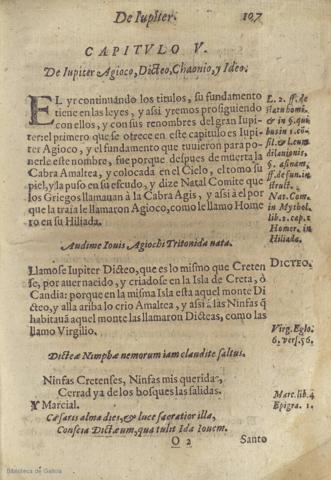 De Iupiter. 107
CAPITVLO V.
De Iupiter Agioco, Dicteo, Chaonio, y Ideo.
EL yr continuãdo los titulos, su fundamento
tiene en las leyes, y assi yremos prosiguiendo
con ellos, y con sus renombres del gran Iupi-
ter: el primero que se ofrece en este capitulo es Iupi-
ter Agioco, y el fundamento que tuuieron para po-
nerle este nombre, fue porque despues de muerta la
Cabra Amaltea, y colocada en el Cielo, el tomo su
piel, y la puso en su escudo, y dize Natal Comite que
los Griegos llamauan à la Cabra Agis, y assi à el por
que la traîa le llamaron Agioco, como le llamo Home
ro en su Hiliada.
L. 2. ff. de
statu homi.
& in §. qui
busin 1. cõ-
sil. & l. cum
§. asinam.
ff. de fun. in
struct.
Nat. Com.
in Mythol.
lib. 2. cap. 2
Homer. in
Hiliada.
Audime Iouis Agiochi Tritonida nata.
Llamose Iupiter Dicteo, que es lo mismo que Creten
se, por auer nacido, y criadose en la Isla de Creta, ò
Candia: porque en la misma Isla esta aquel monte Di
cteo, y alla ariba lo crio Amaltea, y assi à las Ninfas q̃
habitauã aquel monte las llamaron Dicteas, como las
llamo Virgilio.
DICTEO.
Virg. Eglo.
6. vers. 56.
Dicteæ Nimphæ nemorum iam claudite saltus.
Ninfas Cretenses, Ninfas mis queridas,
Cerrad ya de los bosques las salidas.
Y Marcial.
Mart. lib. 4
Epigra. 1.
Cæsaris alma dies, & luce sacratior illa,
Conscia Dictæum, qua tulit Ida Iouem.
O 2 Santo
Biblioteca de Galicia